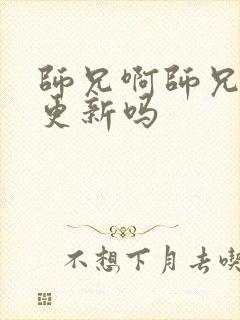 師兄啊師兄
更新吗
不想下月去喫